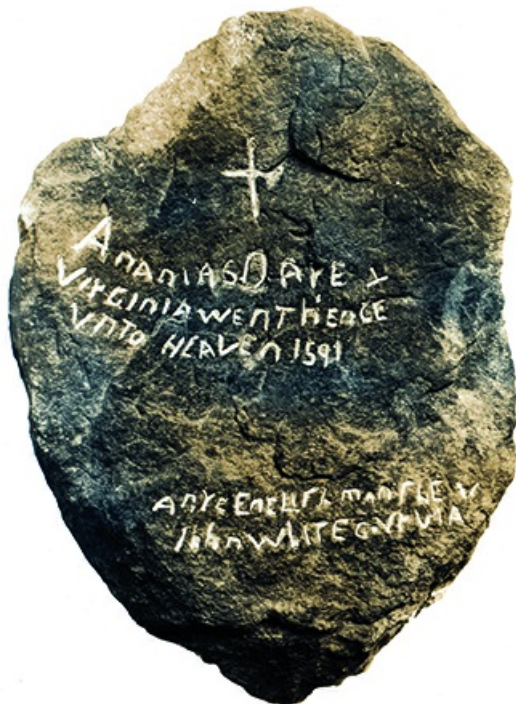 ANANIAS DARE &
VIRGINIA WENT HENCE
VNTO HEAVEN 1591
ANYE ENGLISHMAN SHEW
JOHN WHITE GOVR VIA